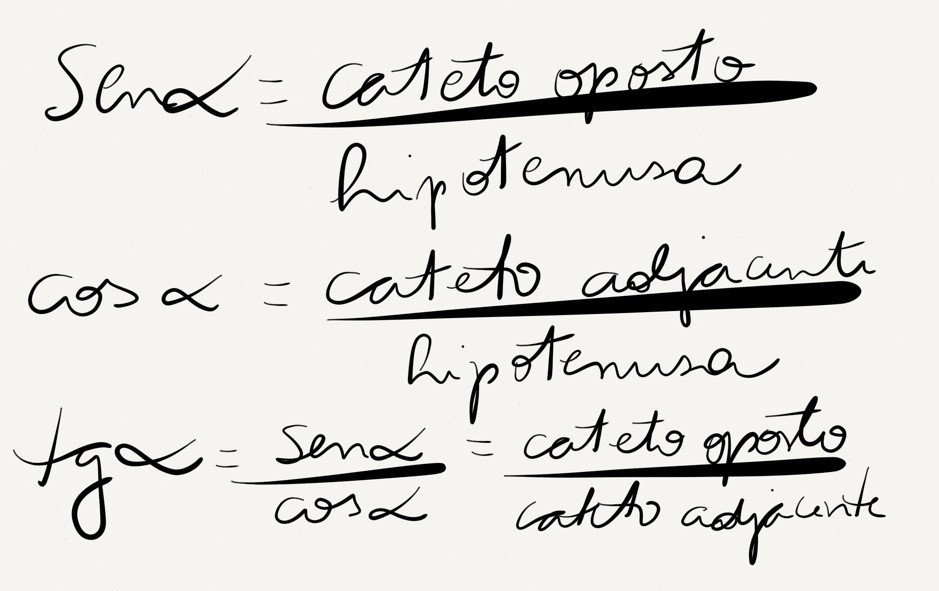 Sen α = cateto oposto
hipotenusa
cos α = cateto adjacente
hipotenusa
tg α = sen α = cateto oposto
cos α cateto adjacente